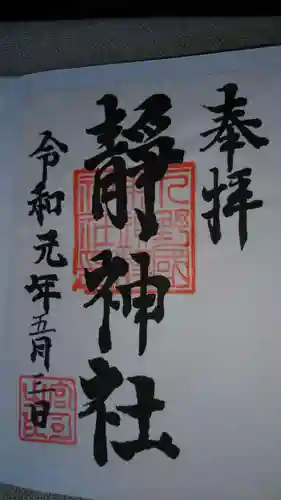 奉拝
靜神社
令和元年五月三日